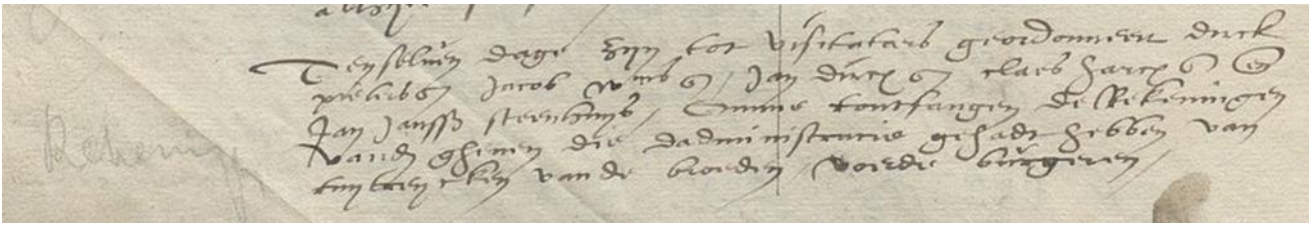 Tenselven dage zijn tot visitatoirs geordonneert dirck
pieterss Jacob wills, Jan dircx claes harcx en
Jan Janssz steenhuys, Omme tontfangen de Rekeningen
vanden ghenen die dadministracie gehadt hebben van
vande broeden, voerde burgeren,
Rekening